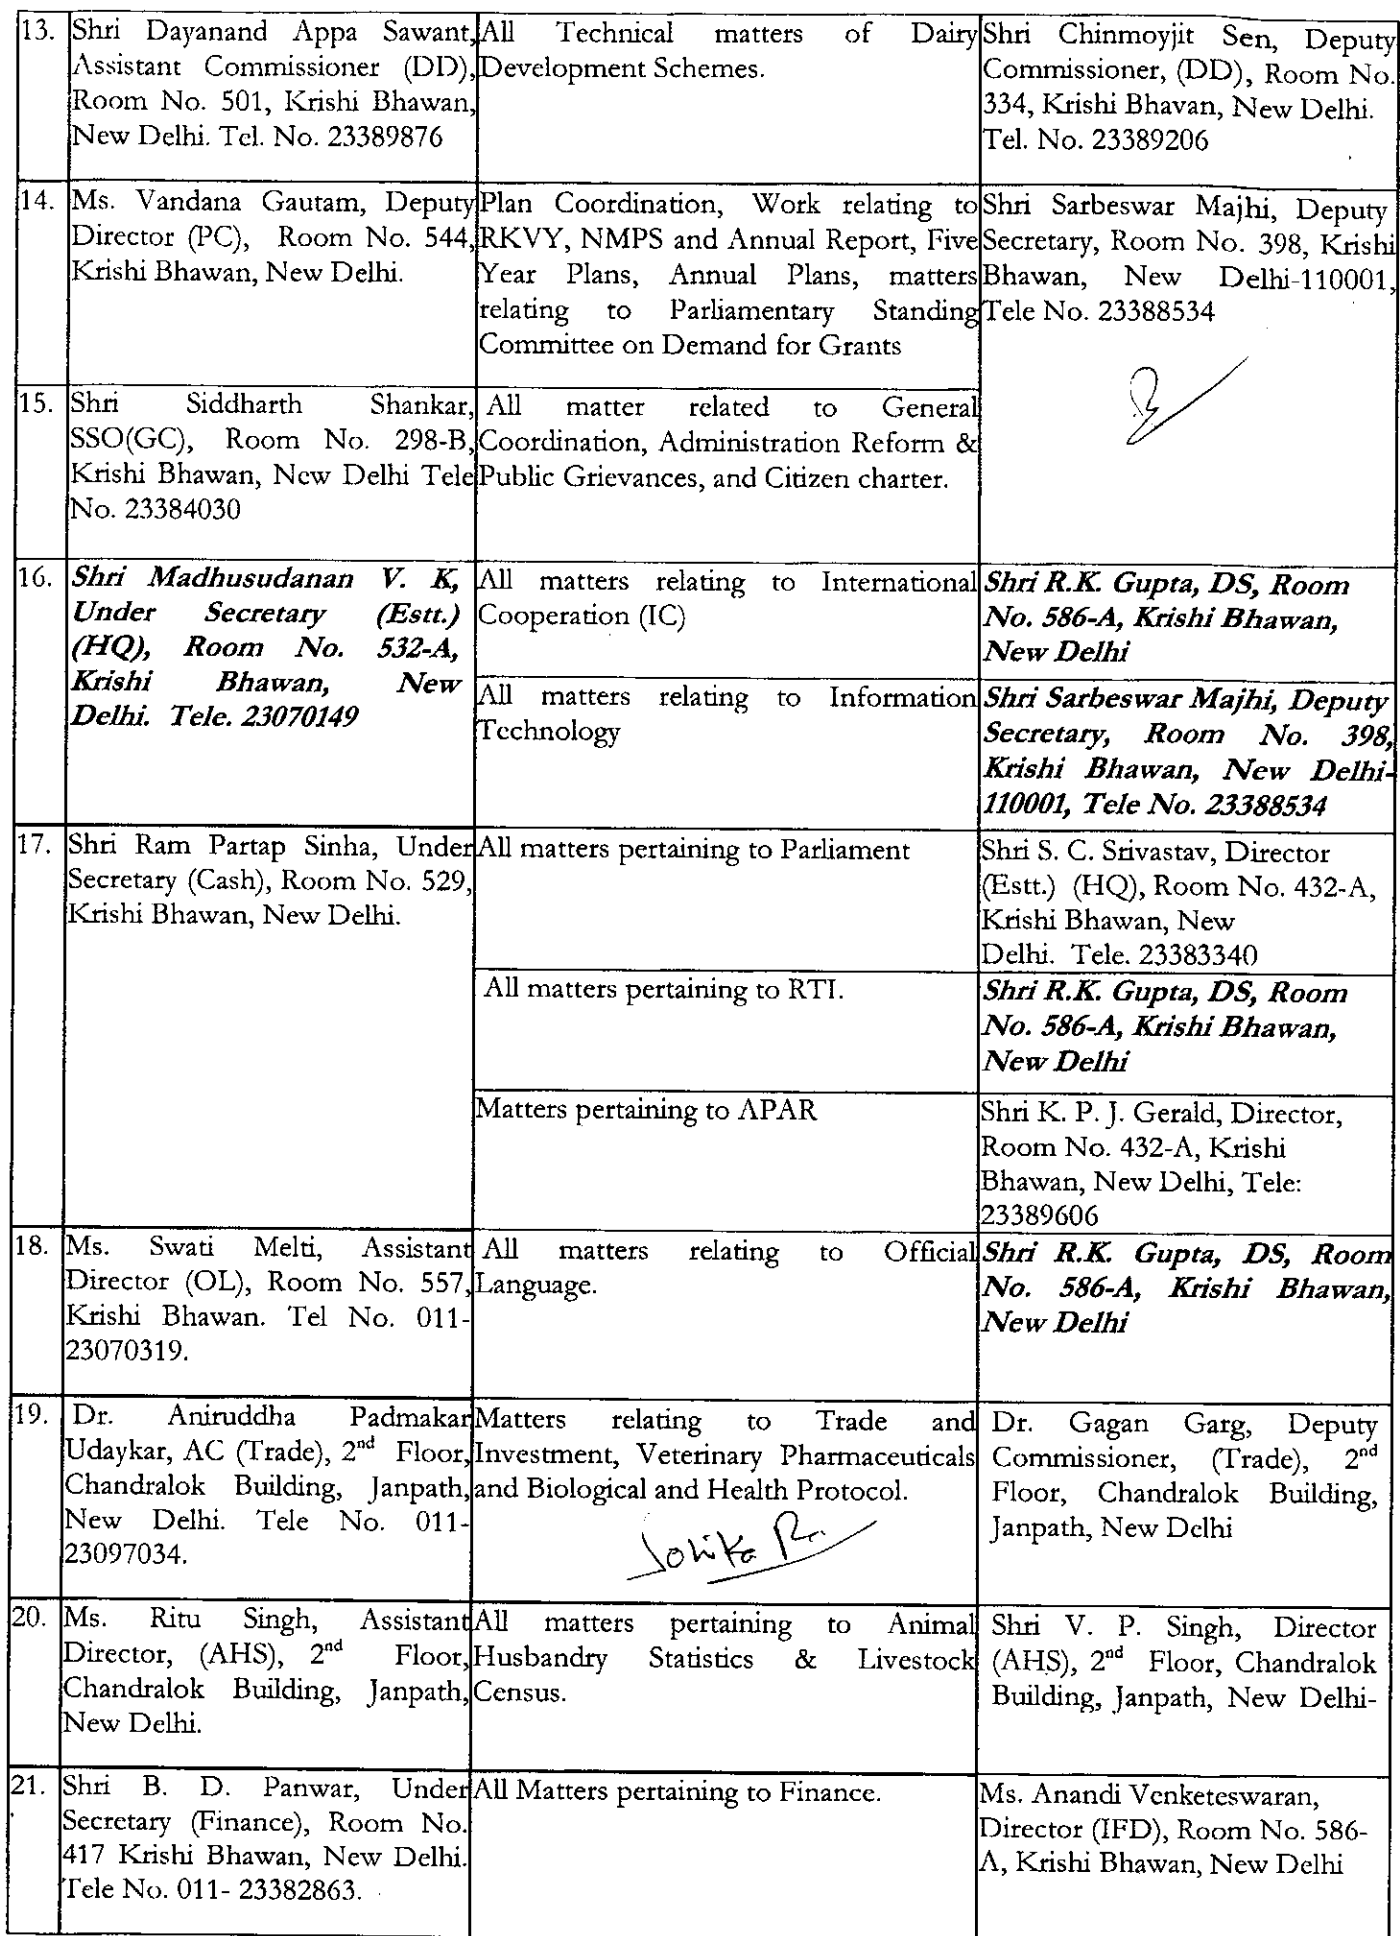 13.
Shri Dayanand Appa Sawant,
Assistant Commissioner (DD),
Room No. 501, Krishi Bhawan,
New Delhi. Tel. No. 23389876
All Technical matters of Dairy
Development Schemes.
Shri Chinmoyjit Sen, Deputy
Commissioner, (DD), Room No.
334, Krishi Bhavan, New Delhi.
Tel. No. 23389206
14.
Ms. Vandana Gautam, Deputy
Director (PC), Room No. 544,
Krishi Bhawan, New Delhi.
Plan Coordination, Work relating to
RKVY, NMPS and Annual Report, Five
Year Plans, Annual Plans, matters
relating to Parliamentary Standing
Committee on Demand for Grants
Shri Sarbeswar Majhi, Deputy
Secretary, Room No. 398, Krishi
Bhawan, New Delhi-110001,
Tele No. 23388534
15.
Shri Siddharth Shankar,
SSO(GC), Room No. 298-B,
Krishi Bhawan, New Delhi Tele
No. 23384030
All matter related to General
Coordination, Administration Reform &
Public Grievances, and Citizen charter.
16.
Shri Madhusudanan V. K,
Under Secretary (Estt.)
(HQ), Room No. 532-A,
Krishi Bhawan, New
Delhi. Tele. 23070149
All matters relating to International
Cooperation (IC)
Shri R.K. Gupta, DS, Room
No. 586-A, Krishi Bhawan,
New Delhi
All matters relating to Information
Technology
Shri Sarbeswar Majhi, Deputy
Secretary, Room No. 398,
Krishi Bhawan, New Delhi-
110001, Tele No. 23388534
17.
Shri Ram Partap Sinha, Under
Secretary (Cash), Room No. 529,
Krishi Bhawan, New Delhi.
All matters pertaining to Parliament
Shri S. C. Srivastav, Director
(Estt.) (HQ), Room No. 432-A,
Krishi Bhawan, New
Delhi. Tele. 23383340
All matters pertaining to RTI.
Shri R.K. Gupta, DS, Room
No. 586-A, Krishi Bhawan,
New Delhi
Matters pertaining to APAR
Shri K. P. J. Gerald, Director,
Room No. 432-A, Krishi
Bhawan, New Delhi, Tele:
23389606
18.
Ms. Swati Melti, Assistant
Director (OL), Room No. 557,
Krishi Bhawan. Tel No. 011-
23070319.
All matters relating to Official
Language.
Shri R.K. Gupta, DS, Room
No. 586-A, Krishi Bhawan,
New Delhi
19.
Dr. Aniruddha Padmakar
Udaykar, AC (Trade), 2nd Floor,
Chandralok Building, Janpath,
New Delhi. Tele No. 011-
23097034.
Matters relating to Trade and
Investment, Veterinary Pharmaceuticals
and Biological and Health Protocol.
Dr. Gagan Garg, Deputy
Commissioner, (Trade), 2nd
Floor, Chandralok Building,
Janpath, New Delhi
20.
Ms. Ritu Singh, Assistant
Director, (AHS), 2nd Floor,
Chandralok Building, Janpath,
New Delhi.
All matters pertaining to Animal
Husbandry Statistics & Livestock
Census.
Shri V. P. Singh, Director
(AHS), 2nd Floor, Chandralok
Building, Janpath, New Delhi-
21.
Shri B. D. Panwar, Under
Secretary (Finance), Room No.
417 Krishi Bhawan, New Delhi.
Tele No. 011- 23382863.
All Matters pertaining to Finance.
Ms. Anandi Venketeswaran,
Director (IFD), Room No. 586-
A, Krishi Bhawan, New Delhi